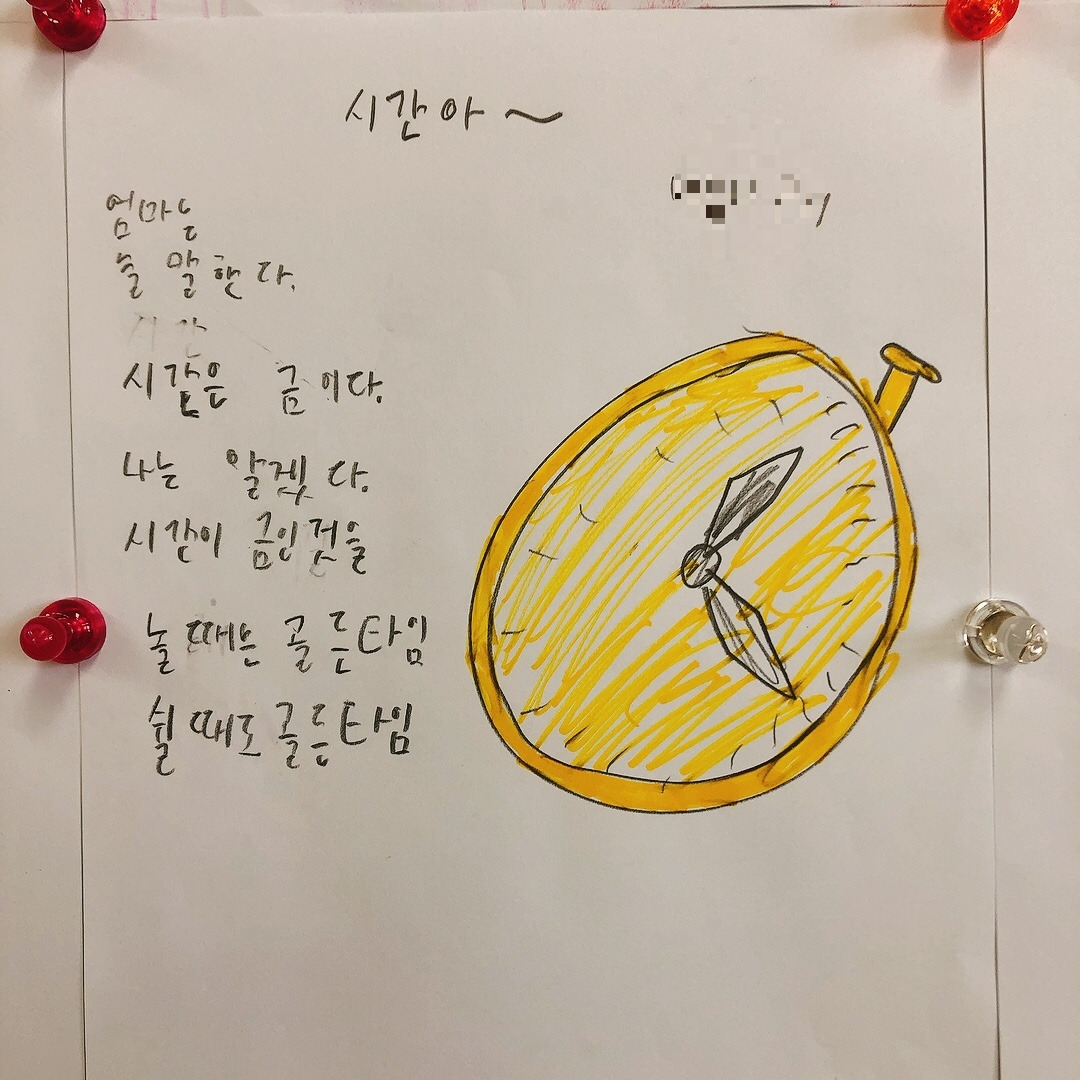 시간아~
엄마는
늘 말한다.
시간
시간은 금이다.
나는 알겠다.
시간이 금인것을
놀때는 골든타임
쉴때도 골든타임